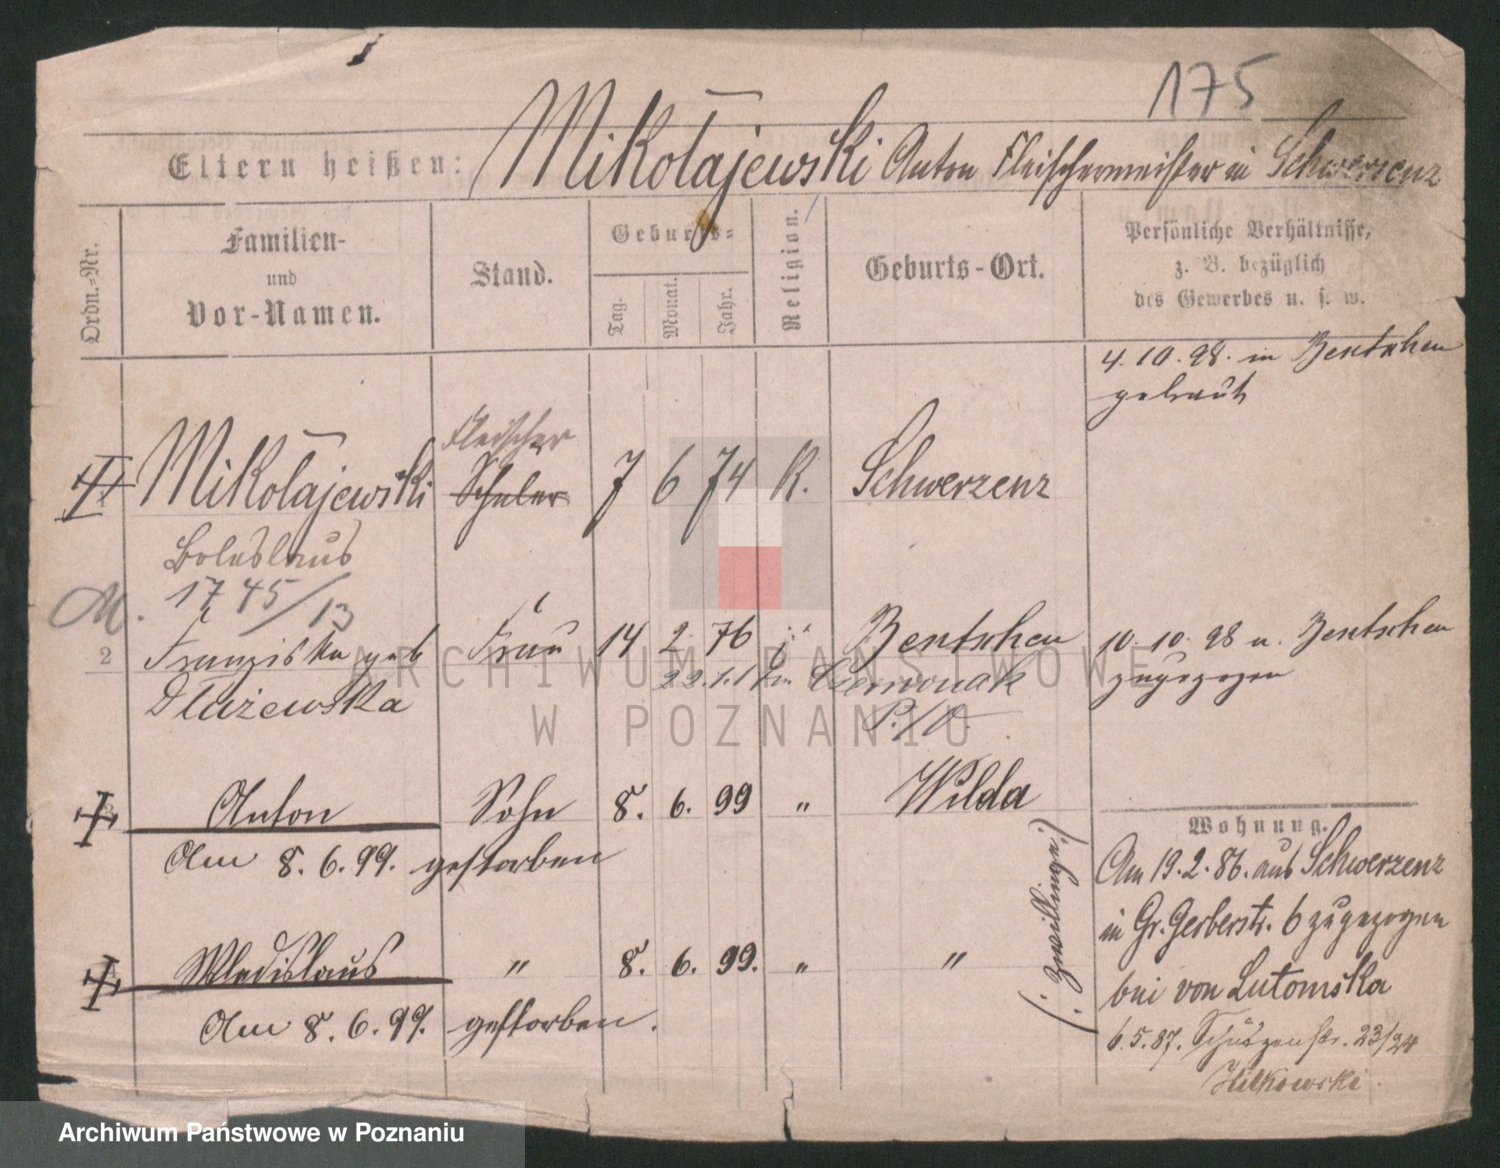 175
Eltern heißen: Mikołajewski Anton Fleischermeister in Schwersenz
Ordn.-Nr.
Familien-
und
Vor-Namen.
Stand.
Geburts-
Tag.
Monat.
Jahr.
Religion.
Geburts-Ort.
Persönliche Verhältnisse,
z. B. bezüglich
des Gewerbes u. s. w.
4. 10. 98. in Bentschen
getraut
Fleischer
Mikołajewski Schüler 7 6 74 K. Schwerzenz
Boleslaus
1745/13
M.
2 Franziska geb Frau 14 2. 76 Bentschen 10. 10. 98 v. Bentschen
Dłużewska Czerwonak zugezogen
P./O.
3 Anton Sohn 8. 6. 99 " Wilda
Am 8. 6. 99. gestorben
4 Wladislaus " 8. 6. 99. " "
Am 8. 6. 99. gestorben.
(: Zwillinge :)
Wohnung.
Am 19. 2. 86. aus Schwerzenz
in Gr. Gerberstr. 6 zugezogen
bei von Lutomska
6. 5. 87. Schützenstr. 23/24
Witkowski.
ARCHIWUM PAŃSTWOWE
W POZNANIU
Archiwum Państwowe w Poznaniu